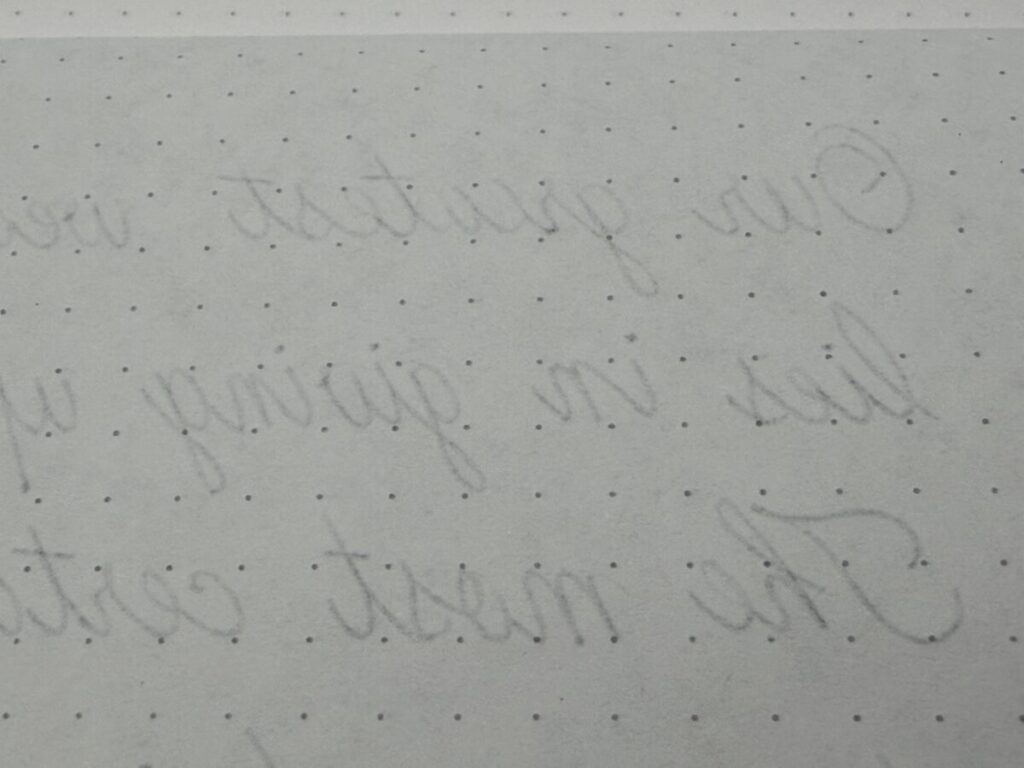 Our greatest wea
lies in giving up
The most certa